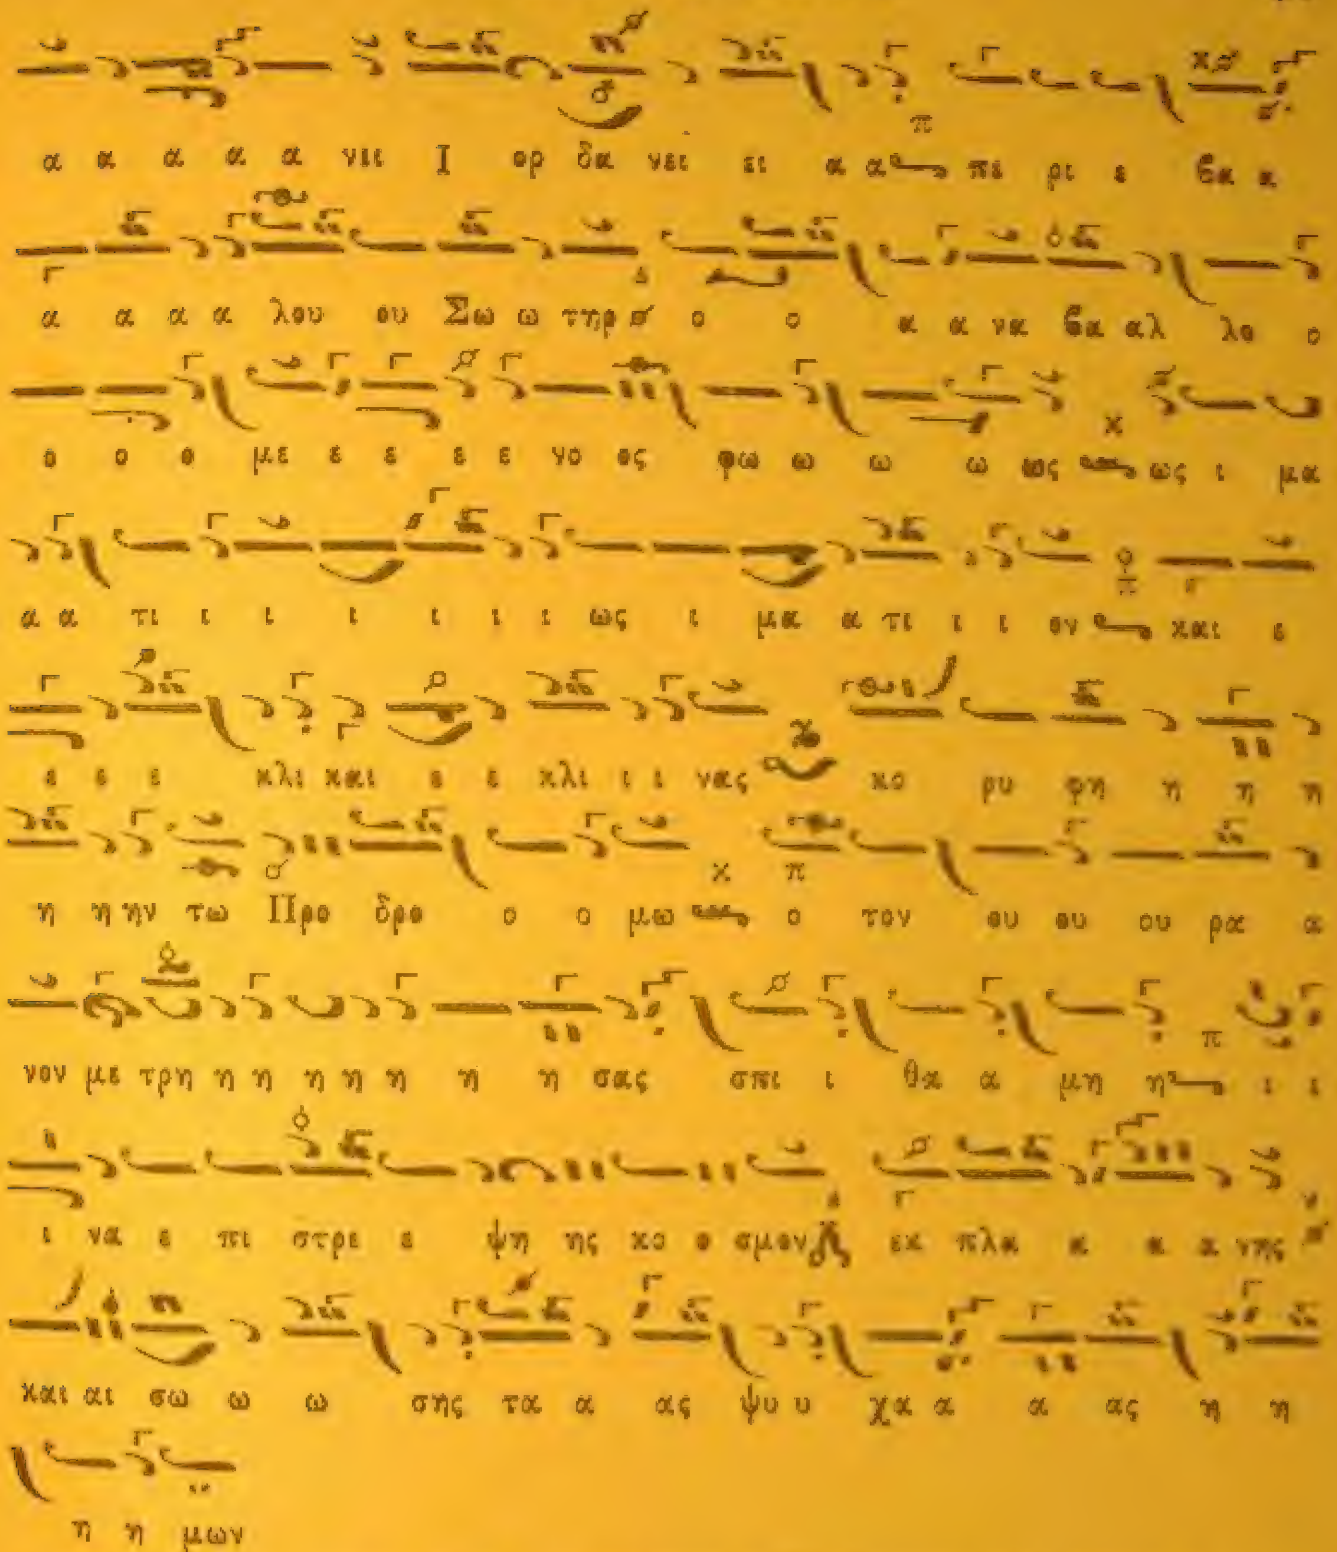 α α α α α νει Ι ορ δα νει ει α α πε ρι ε βα α
α α α α λου ου Σω ω τηρ ο ο α α να βα αλ λο ο
ο ο ο με ε ε ε ε νο ος φω ω ω ω ως ως ι μα
α α τι ι ι ι ι ι ι ως ι μα α τι ι ι ον και ε
ε ε ε κλι και ε ε κλι ι ι νας κο ρυ φη η η η
η η ην τω Προ δρο ο ο μω ο τον ου ου ου ρα α
νον με τρη η η η η η η η σας σπι ι θα α μη η ι ι
ι να ε πι στρε ε ψη ης κο ο σμον εκ πλα α α α νης
και αι σω ω ω σης τα α ας ψυ υ χα α α ας η η
η η μων